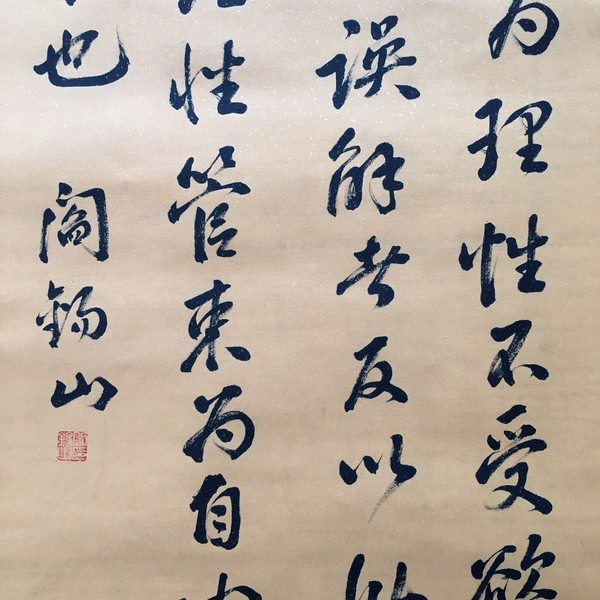 为理性不受欲
误解者反以
性管束为自由
也 阎锡山